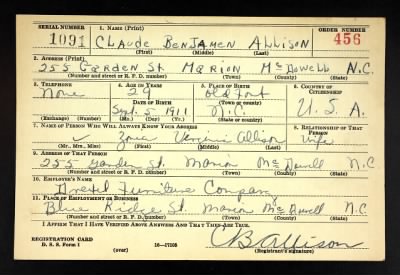 SERIAL NUMBER 1. NAME (Print) ORDER NUMBER
1091 CLAUDE BENJAMEN ALLISON 456
(First) (Middle) (Last)
2. ADDRESS (Print)
255 GARDEN St. MARION McDowell N.C.
(Number and street or R. F. D. number) (Town) (County) (State)
3. TELEPHONE 4. AGE IN YEARS 5. PLACE OF BIRTH 6. COUNTRY OF CITIZENSHIP
None 29 Old Fort
DATE OF BIRTH (Town or county)
Sept. 5 1911 N.C. U.S.A.
(Exchange) (Number) (Mo.) (Day) (Yr.) (State or country)
7. NAME OF PERSON WHO WILL ALWAYS KNOW YOUR ADDRESS 8. RELATIONSHIP OF THAT PERSON
Allison Wife
(Mr., Mrs., Miss) (First) (Middle) (Last)
9. ADDRESS OF THAT PERSON
255 Garden St. Marion McDowell N.C
(Number and street or R. F. D. number) (Town) (County) (State)
10. EMPLOYER'S NAME
Drexel Furniture Company
11. PLACE OF EMPLOYMENT OR BUSINESS
Blue Ridge St. Marion McDowell N.C.
(Number and street or R. F. D. number) (Town) (County) (State)
I AFFIRM THAT I HAVE VERIFIED ABOVE ANSWERS AND THAT THEY ARE TRUE.
REGISTRATION CARD
D. S. S. Form 1 (over) 16—17105 CB Allison
(Registrant's signature)